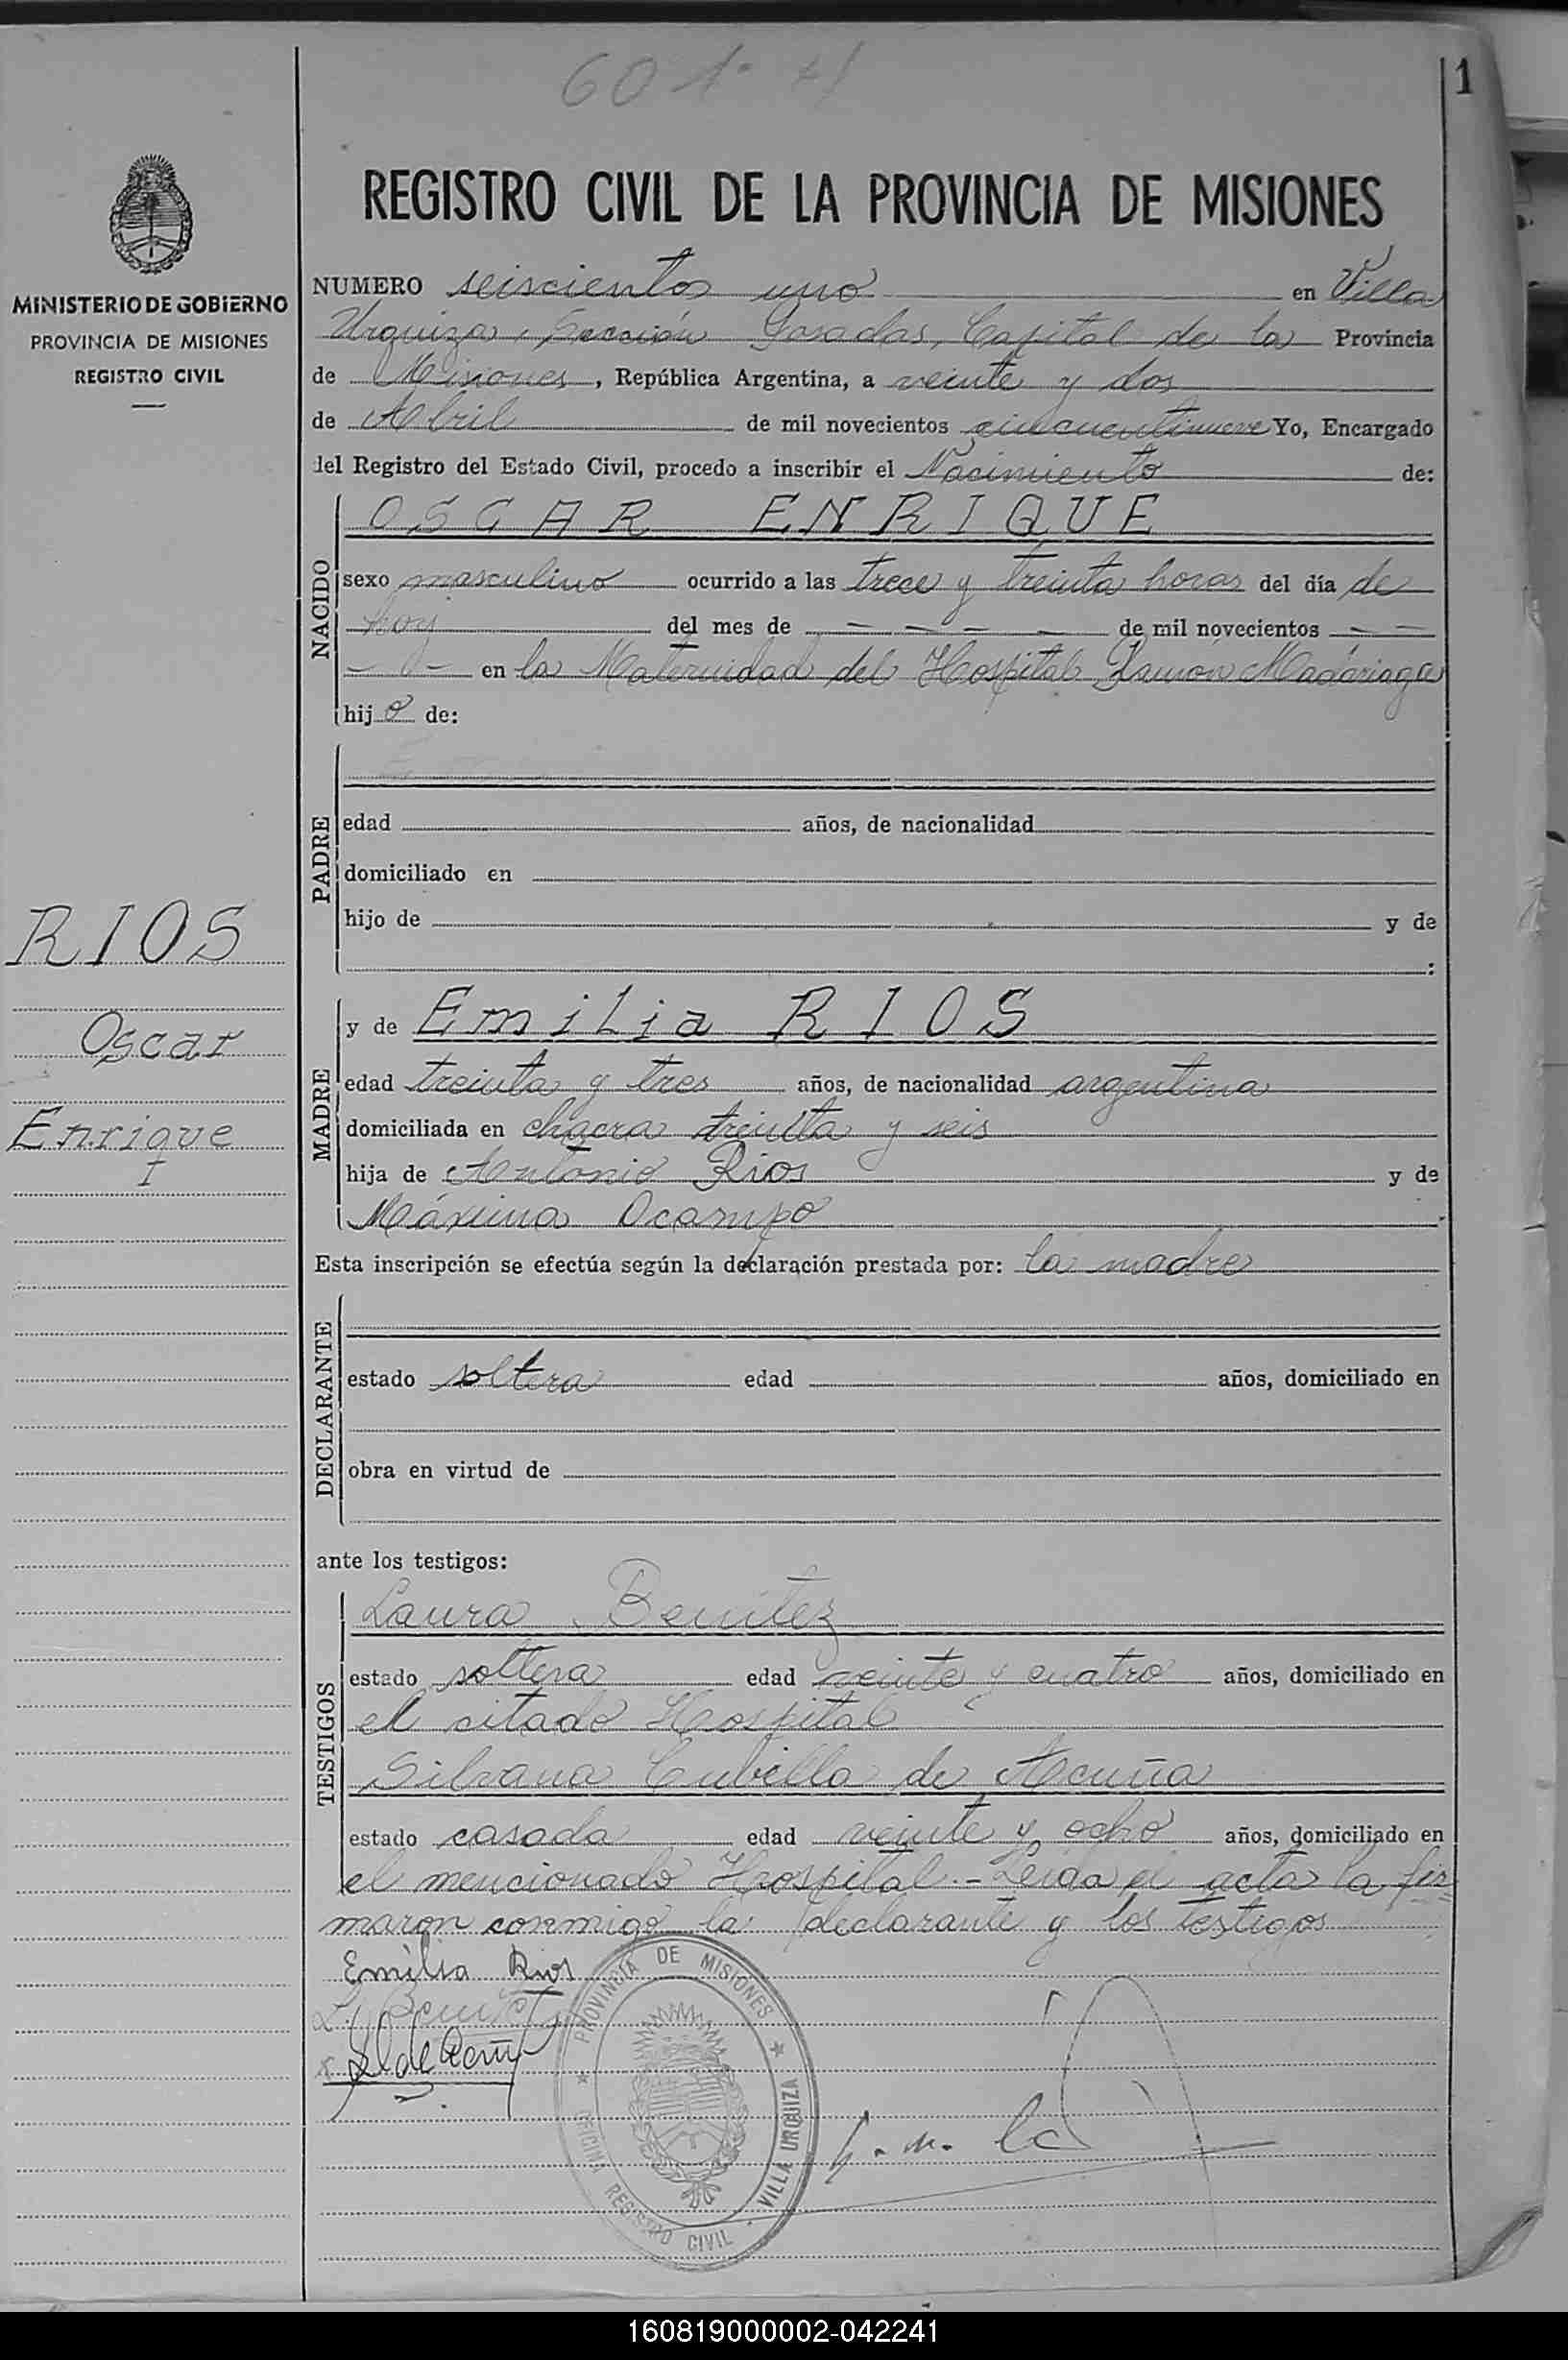 601
1
REGISTRO CIVIL DE LA PROVINCIA DE MISIONES
MINISTERIO DE GOBIERNO
PROVINCIA DE MISIONES
REGISTRO CIVIL
NUMERO seiscientos uno en Villa
Urquiza, Sección Posadas, Capital de la Provincia
de Misiones, República Argentina, a veinte y dos
de Abril de mil novecientos cincuentinueve Yo, Encargado
del Registro del Estado Civil, procedo a inscribir el Nacimiento de:
NACIDO
OSCAR ENRIQUE
sexo masculino ocurrido a las trece y treinta horas del día de
hoy del mes de — — — — de mil novecientos — —
— — en la Maternidad del Hospital Ramón Madariaga
hijo de:
PADRE
edad años, de nacionalidad
domiciliado en
hijo de y de
:
RIOS
Oscar
Enrique
I
MADRE
y de Emilia RIOS
edad treinta y tres años, de nacionalidad argentina
domiciliada en chacra treinta y seis
hija de Antonio Rios y de
Máxima Ocampo
Esta inscripción se efectúa según la declaración prestada por: la madre
DECLARANTE
estado soltera edad años, domiciliado en
obra en virtud de
ante los testigos:
TESTIGOS
Laura Benitez
estado soltera edad veinte y cuatro años, domiciliado en
el citado Hospital
Silvana Cubilla de Acuña
estado casada edad veinte y ocho años, domiciliado en
el mencionado Hospital.- Leida el acta la fir
maron conmigo la declarante y los testigos
Emilia Rios
L. Benitez
S. de Acuña
PROVINCIA DE MISIONES
OFICINA REGISTRO CIVIL
VILLA URQUIZA
160819000002-042241